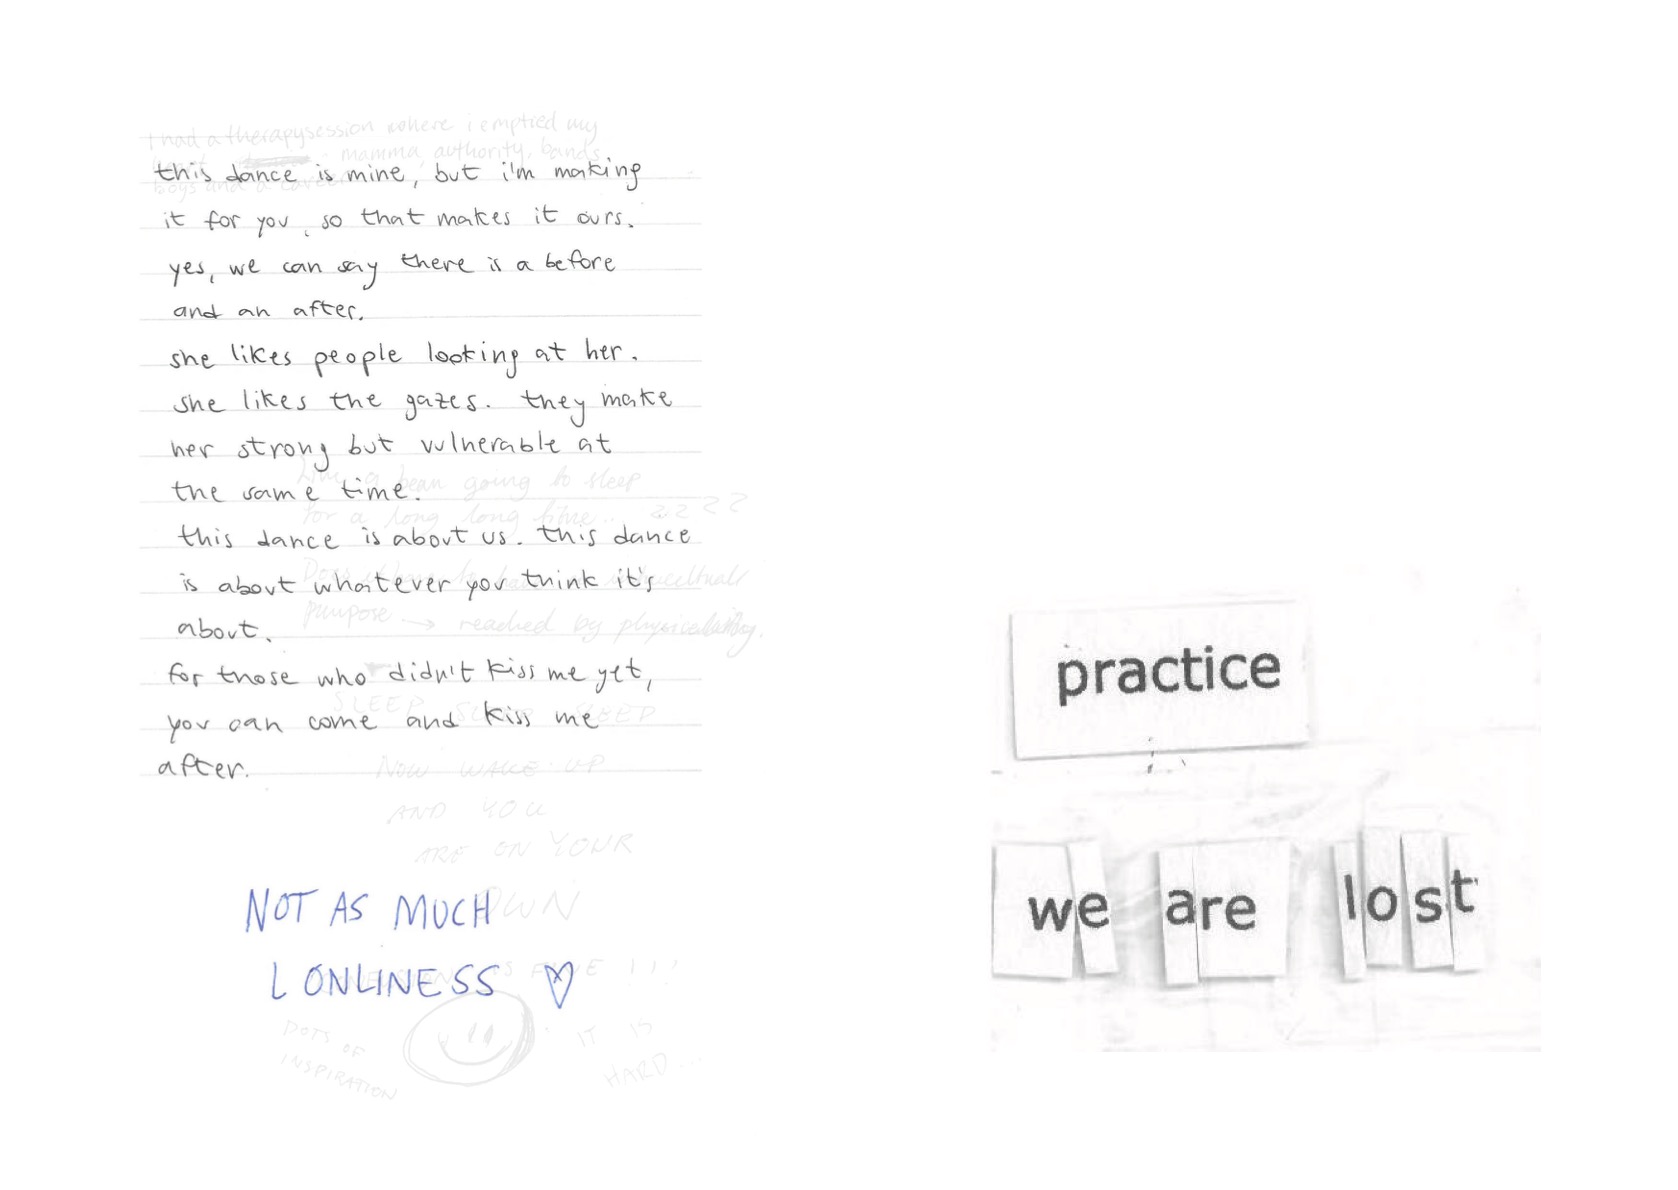 I had a therapysession where i emptied my
mamma, authority, bands
boys and a
this dance is mine, but i'm making
it for you, so that makes it ours.
yes, we can say there is a before
and an after.
she likes people looking at her.
she likes the gazes. they make
her strong but vulnerable at
bean going to sleep
the same time.
for a long long time.. zzzz
this dance is about us. this dance
is about whatever you think it's
purpose → reached by
about.
for those who didn't kiss me yet,
SLEEP SLEEP SLEEP
you can come and kiss me
after.
NOW WAKE UP
AND YOU
ARE ON YOUR
OWN
NOT AS MUCH
LONLINESS ♡
DOTS OF
INSPIRATION
IT IS
HARD...
practice
we are lost